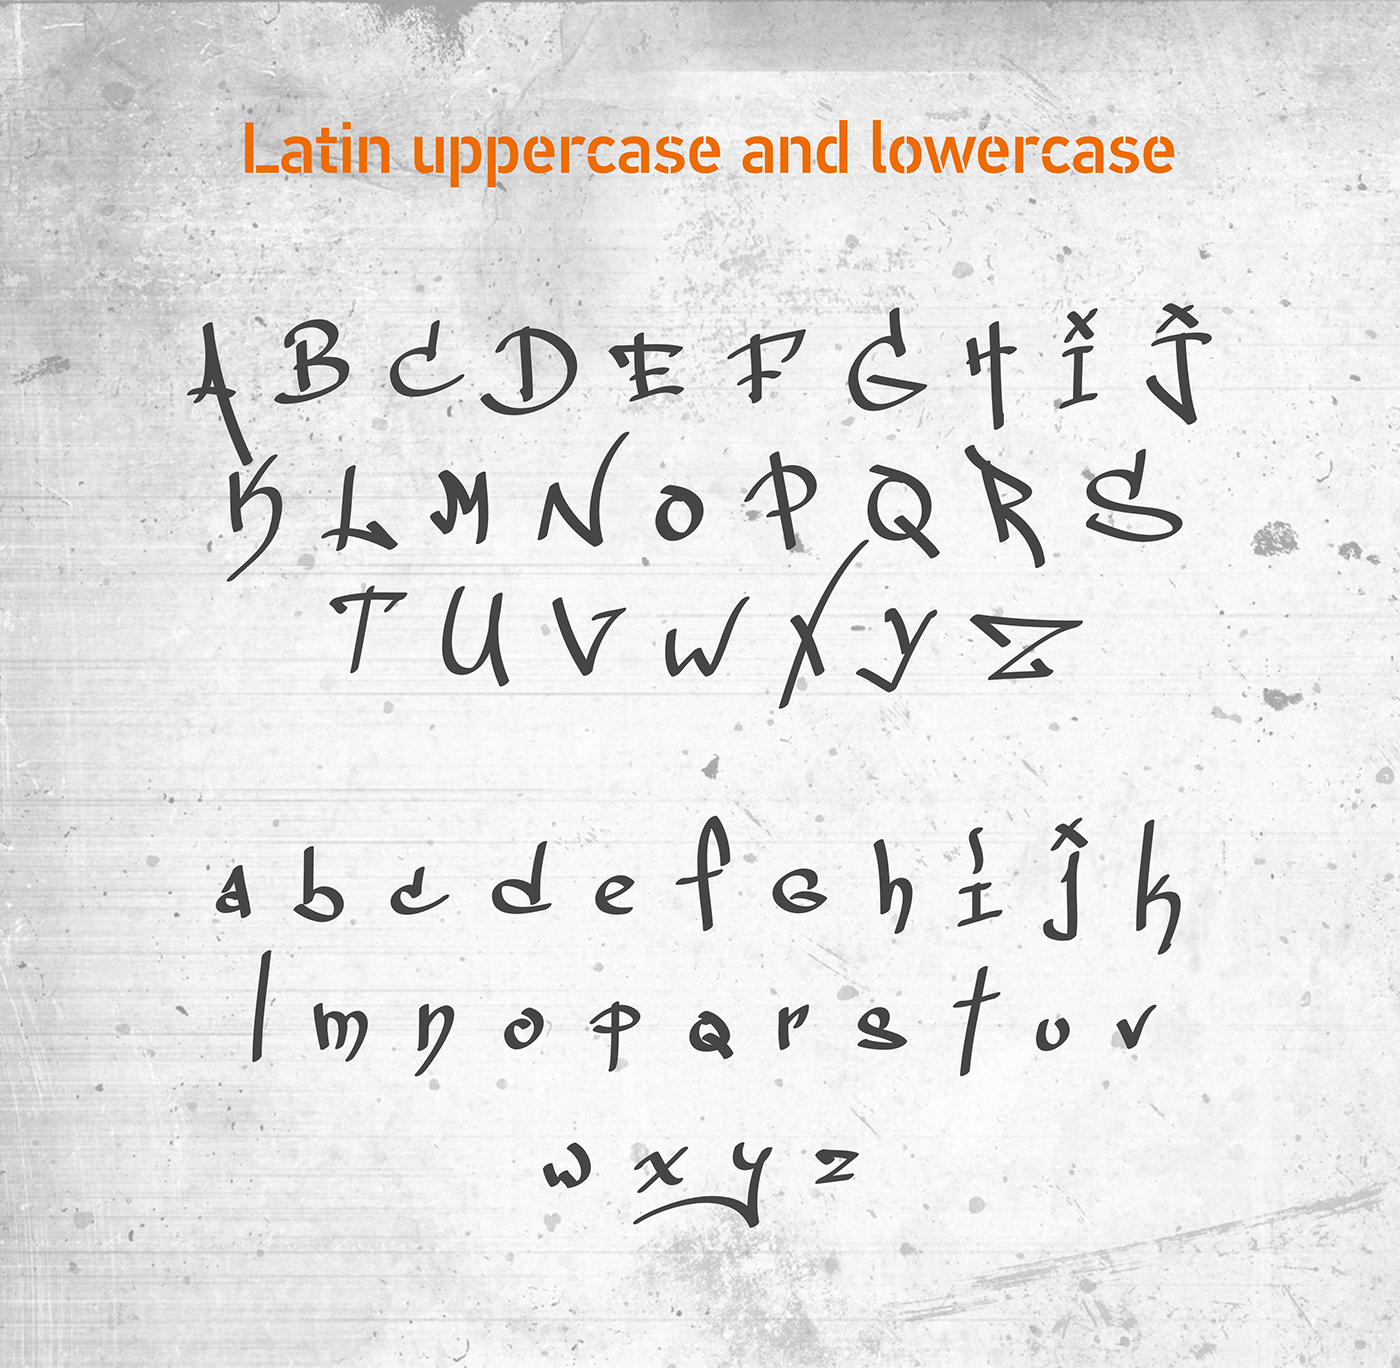 Latin uppercase and lowercase
A B C D E F G H I J
K L M N O P Q R S
T U V W X Y Z
a b c d e f g h i j k
l m n o p q r s t u v
w x y z